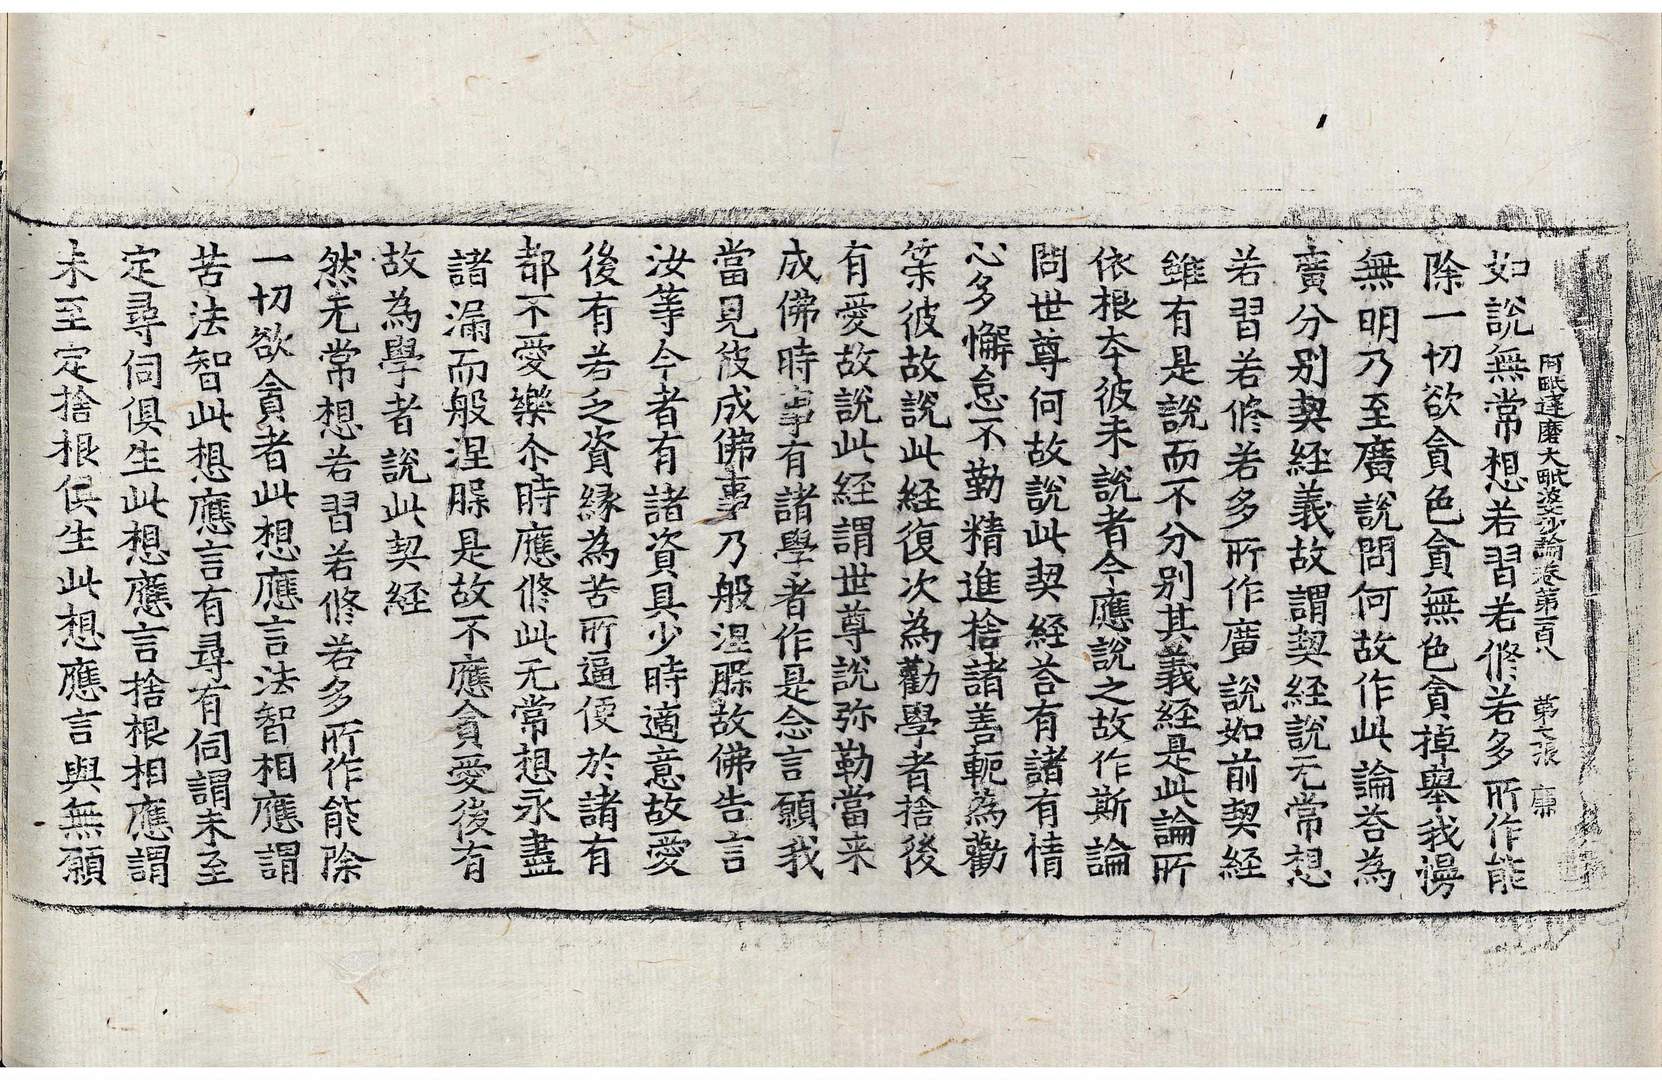 阿毗達磨大毗婆沙論卷第一百八　第七張　廉
如說無常想若習若修若多所作能
除一切欲貪色貪無色貪掉舉我慢
無明乃至廣說問何故作此論荅為
廣分別契經義故謂契經說无常想
若習若修若多所作廣說如前契經
雖有是說而不分別其義經是此論所
依根本彼未說者今應說之故作斯論
問世尊何故說此契經荅有諸有情
心多懈怠不勤精進捨諸善軛為勸
策彼故說此經復次為勸學者捨後
有愛故說此經謂世尊說弥勒當来
成佛時事有諸學者作是念言願我
當見彼成佛事乃般涅槃故佛告言
汝等今者有諸資具少時適意故愛
後有若乏資緣為苦所逼便於諸有
都不愛樂尒時應修此无常想永盡
諸漏而般涅槃是故不應貪愛後有
故為學者說此契經
然无常想若習若修若多所作能除
一切欲貪者此想應言法智相應謂
苦法智此想應言有尋有伺謂未至
定尋伺俱生此想應言捨根相應謂
未至定捨根俱生此想應言與無願